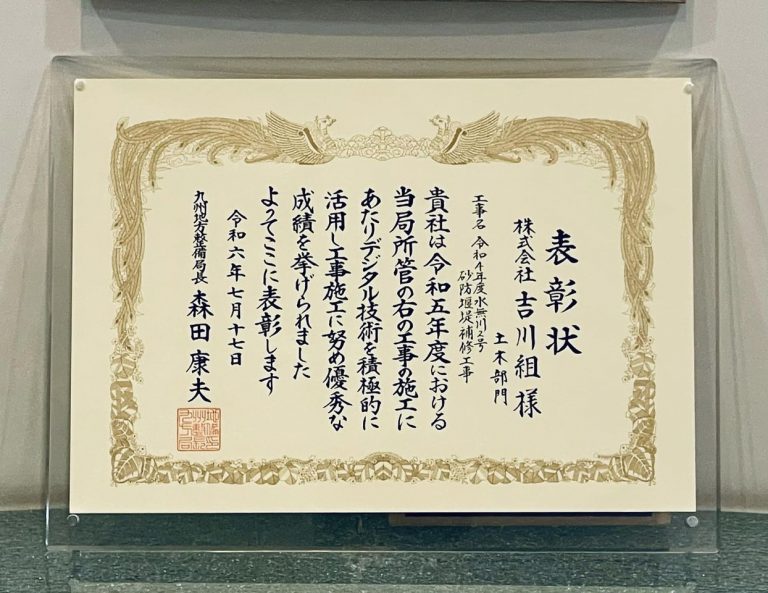 表彰状
株式会社 吉川組様
土木部門
工事名 令和4年度水無川2号
砂防堰堤補修工事
貴社は令和五年度における
当局所管の右の工事の施工に
あたりデジタル技術を積極的に
活用し工事施工に努め優秀な
成績を挙げられました
よってここに表彰します
令和六年七月十七日
九州地方整備局長 森田康夫